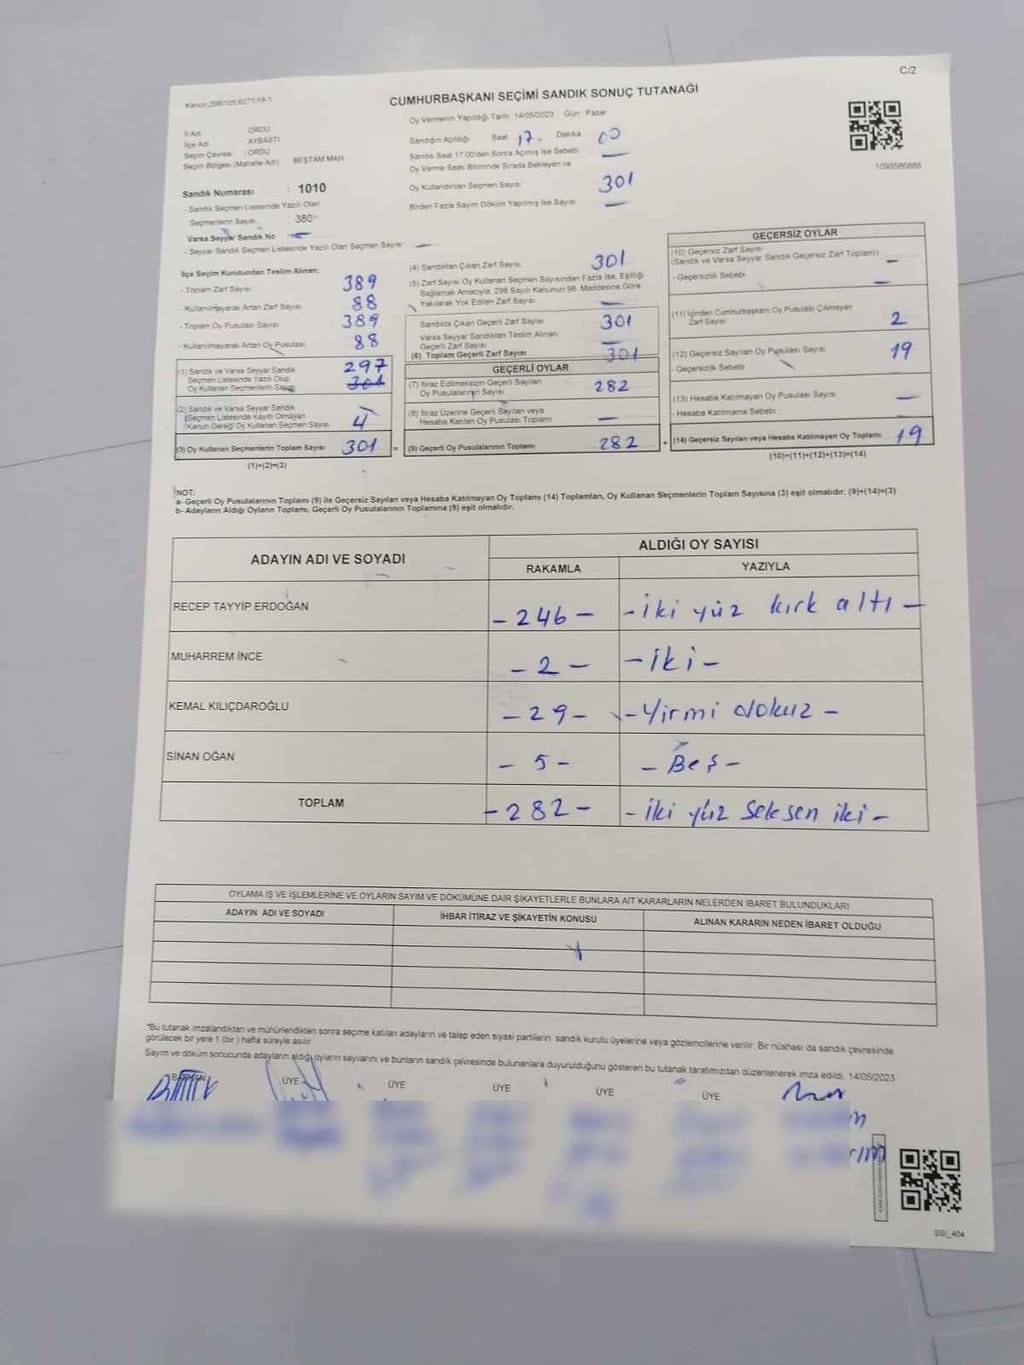 C/2
Kanun 298/105.6271/19-1
CUMHURBAŞKANI SEÇİMİ SANDIK SONUÇ TUTANAĞI
Oy Vermenin Yapıldığı Tarih 14/05/2023 Gün Pazar
İl Adı ORDU
İlçe Adı AYBASTI
Seçim Çevresi : ORDU
Seçim Bölgesi (Mahalle Adı) BEŞTAM MAH
Sandığın Açıldığı Saat 17. Dakika 00
Sandık Saat 17:00'den Sonra Açılmış İse Sebebi —
Oy Verme Saati Bitiminde Sırada Bekleyen ve
Oy Kullandırılan Seçmen Sayısı 301
Birden Fazla Sayım Döküm Yapılmış İse Sayısı —
1090586888
Sandık Numarası : 1010
- Sandık Seçmen Listesinde Yazılı Olan
Seçmenlerin Sayısı : 380
Varsa Seyyar Sandık No : —
- Seyyar Sandık Seçmen Listesinde Yazılı Olan Seçmen Sayısı —
İlçe Seçim Kurulundan Teslim Alınan;
- Toplam Zarf Sayısı 389
- Kullanılmayarak Artan Zarf Sayısı 88
- Toplam Oy Pusulası Sayısı 389
- Kullanılmayarak Artan Oy Pusulası 88
(1) Sandık ve Varsa Seyyar Sandık
Seçmen Listesinde Yazılı Olup
Oy Kullanan Seçmenlerin Sayısı
297
301
(2) Sandık ve Varsa Seyyar Sandık
Seçmen Listesinde Kayıtlı Olmayan
(Kanun Gereği) Oy Kullanan Seçmen Sayısı 4
(3) Oy Kullanan Seçmenlerin Toplam Sayısı 301 =
(1)+(2)=(3)
(4) Sandıktan Çıkan Zarf Sayısı 301
(5) Zarf Sayısı Oy Kullanan Seçmen Sayısından Fazla İse, Eşitliği
Sağlamak Amacıyla, 298 Sayılı Kanunun 98. Maddesine Göre
Yakılarak Yok Edilen Zarf Sayısı —
Sandıkta Çıkan Geçerli Zarf Sayısı 301
Varsa Seyyar Sandıktan Teslim Alınan
Geçerli Zarf Sayısı —
(6) Toplam Geçerli Zarf Sayısı 301
GEÇERLİ OYLAR
(7) İtiraz Edilmeksizin Geçerli Sayılan
Oy Pusulalarının Sayısı 282
(8) İtiraz Üzerine Geçerli Sayılan veya
Hesaba Katılan Oy Pusulası Toplamı —
(9) Geçerli Oy Pusulalarının Toplamı 282 +
GEÇERSİZ OYLAR
(10) Geçersiz Zarf Sayısı
(Sandık ve Varsa Seyyar Sandık Geçersiz Zarf Toplamı) —
- Geçersizlik Sebebi —
(11) İçinden Cumhurbaşkanı Oy Pusulası Çıkmayan
Zarf Sayısı 2
(12) Geçersiz Sayılan Oy Pusulası Sayısı 19
- Geçersizlik Sebebi
(13) Hesaba Katılmayan Oy Pusulası Sayısı —
- Hesaba Katılmama Sebebi —
(14) Geçersiz Sayılan veya Hesaba Katılmayan Oy Toplamı 19
(10)+(11)+(12)+(13)=(14)
NOT:
a- Geçerli Oy Pusulalarının Toplamı (9) ile Geçersiz Sayılan veya Hesaba Katılmayan Oy Toplamı (14) Toplamları, Oy Kullanan Seçmenlerin Toplam Sayısına (3) eşit olmalıdır. (9)+(14)=(3)
b- Adayların Aldığı Oyların Toplamı, Geçerli Oy Pusulalarının Toplamına (9) eşit olmalıdır.
ADAYIN ADI VE SOYADI
ALDIĞI OY SAYISI
RAKAMLA YAZIYLA
RECEP TAYYİP ERDOĞAN -246- -iki yüz kırk altı-
MUHARREM İNCE -2- -iki-
KEMAL KILIÇDAROĞLU -29- -Yirmi dokuz-
SİNAN OĞAN -5- -Beş-
TOPLAM -282- -iki yüz seksen iki-
OYLAMA İŞ VE İŞLEMLERİNE VE OYLARIN SAYIM VE DÖKÜMÜNE DAİR ŞİKAYETLERLE BUNLARA AİT KARARLARIN NELERDEN İBARET BULUNDUKLARI
ADAYIN ADI VE SOYADI İHBAR İTİRAZ VE ŞİKAYETİN KONUSU ALINAN KARARIN NEDEN İBARET OLDUĞU
*Bu tutanak imzalandıktan ve mühürlendikten sonra seçime katılan adayların ve talep eden siyasi partilerin sandık kurulu üyelerine veya gözlemcilerine verilir. Bir nüshası da sandık çevresinde
görülecek bir yere 1 (bir) hafta süreyle asılır.
Sayım ve döküm sonucunda adayların aldığı oyların sayılarını ve bunların sandık çevresinde bulunanlara duyurulduğunu gösteren bu tutanak tarafımızdan düzenlenerek imza edildi. 14/05/2023
BAŞKAN ÜYE ÜYE ÜYE ÜYE ÜYE
SSI_404